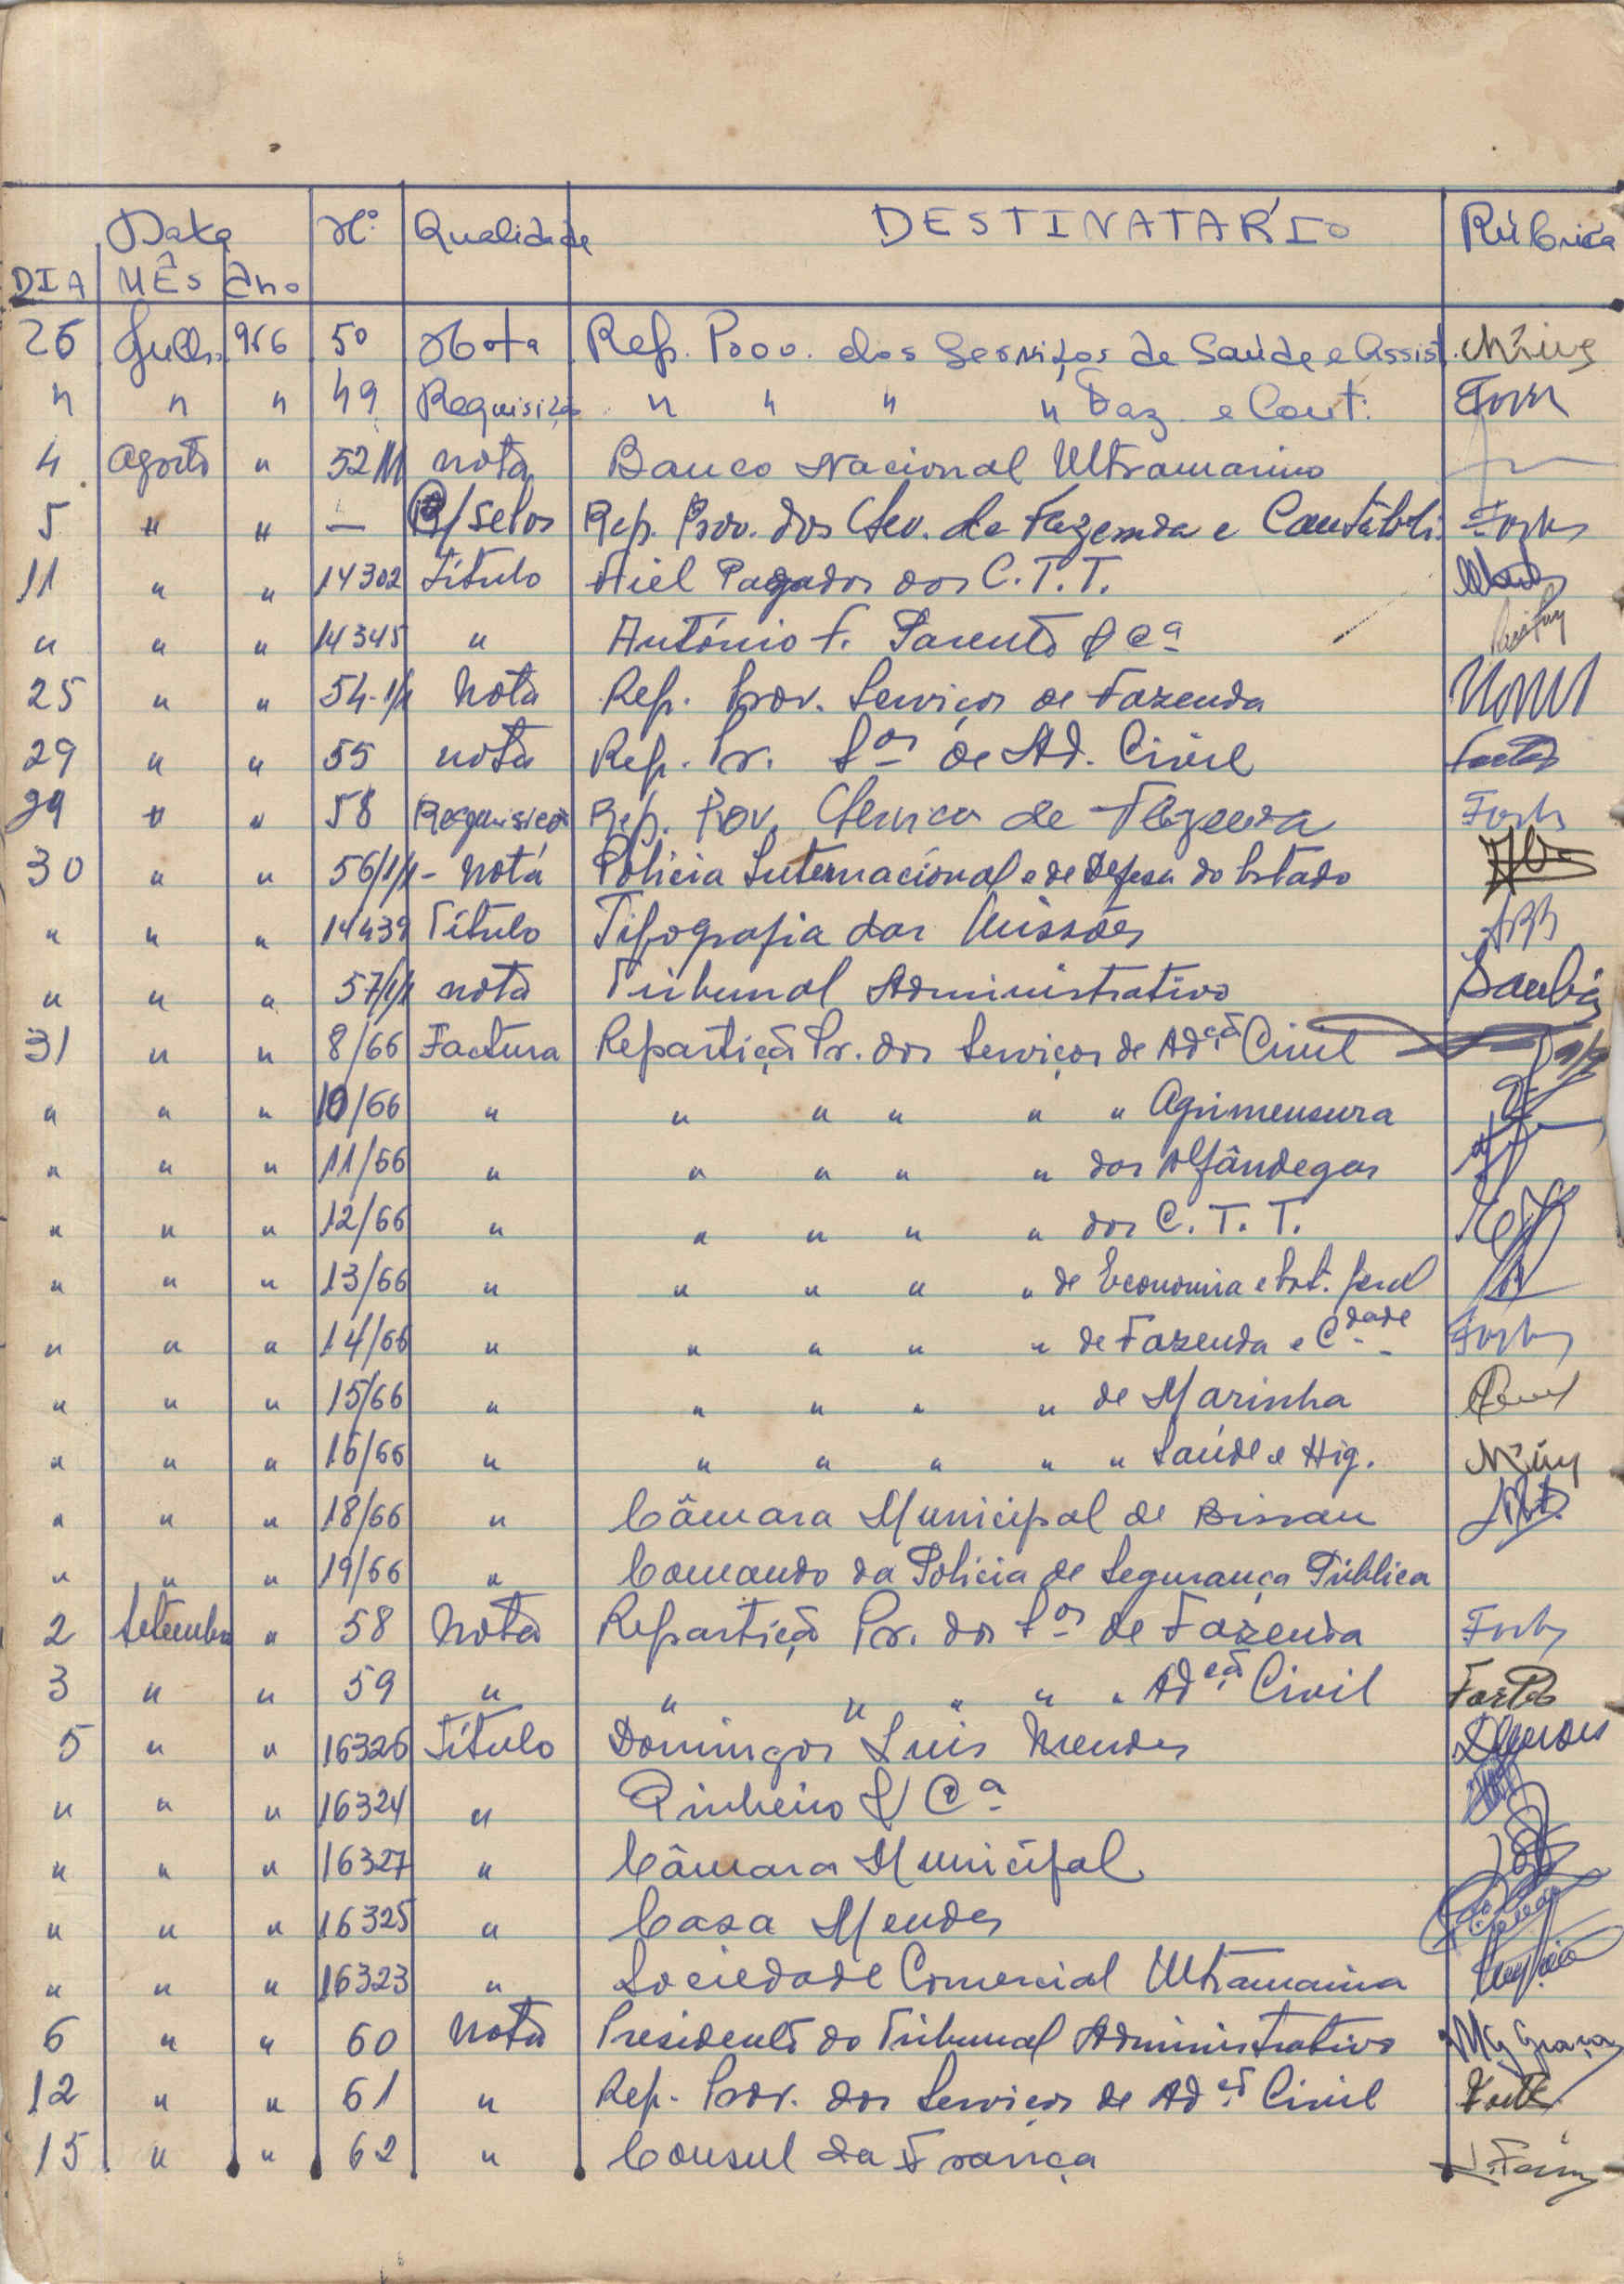 Data Nº Qualidade DESTINATARIO Rúbrica
DIA MÊS Ano
26 Julho 966 50 Nota Rep. Prov. dos Serviços de Saúde e Assist.
" " " 49 Requisição " " " " Faz. e Cont. Fortes
4 Agosto " 52/1/1 nota Banco Nacional Ultramarino
5 " " — R/selos Rep. Prov. dos Sev. de Fazenda e Contabili. Fortes
11 " " 14302 Título Fiel Pagador dos C.T.T.
" " " 14345 " António F. Parente & Cª
25 " " 54-1/1 Nota Rep. Prov. Serviços de Fazenda
29 " " 55 nota Rep. Pr. Sos de Ad. Civil Fortes
29 " " 58 Requisição Rep. Prov. Serviços de Fazenda Fortes
30 " " 56/1/1- Nota Policia Internacional e de Defesa do Estado
" " " 14439 Título Tipografia das Missões
" " " 57/1/1 nota Tribunal Administrativo
31 " " 8/66 Factura Repartição Pr. dos Serviços de Adção Civil
" " " 10/66 " " " " " " Agrimensura
" " " 11/66 " " " " " dos Alfândegas
" " " 12/66 " " " " " dos C. T. T.
" " " 13/66 " " " " " de Economia e Est. Geral
" " " 14/66 " " " " " de Fazenda e Cdade Fortes
" " " 15/66 " " " " " de Marinha
" " " 16/66 " " " " " " Saúde e Hig.
" " " 18/66 " Câmara Municipal de Bissau
" " " 19/66 " Comando da Policia de Segurança Pública
2 Setembro " 58 Nota Repartição Pr. dos Sos de Fazenda Fortes
3 " " 59 " " " " " " Adção Civil Fortes
5 " " 16326 Título Domingos Luis Mendes
" " " 16324 " Pinheiro & Cª
" " " 16327 " Câmara Municipal
" " " 16325 " Casa Mendes
" " " 16323 " Sociedade Comercial Ultramarina
6 " " 60 Nota Presidente do Tribunal Administrativo
12 " " 61 " Rep. Prov. dos Serviços de Adção Civil
15 " " 62 " Consul da França